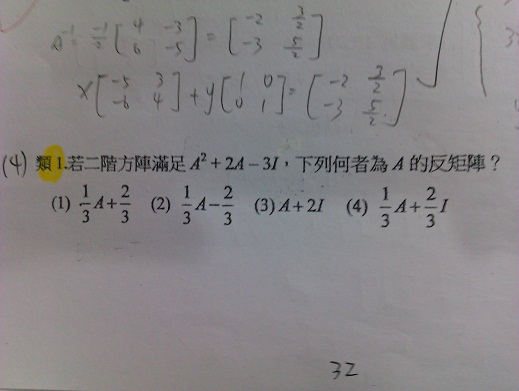 A⁻¹ = -1/2 [4 -3 6 -5] = [-2 3/2 -3 5/2]
x[-5 3 -6 4] + y[1 0 0 1] = [-2 3/2 -3 5/2]
(4) 類1.若二階方陣滿足 A² + 2A − 3I，下列何者為 A 的反矩陣？
(1) 1/3 A + 2/3 (2) 1/3 A − 2/3 (3) A + 2I (4) 1/3 A + 2/3 I
32